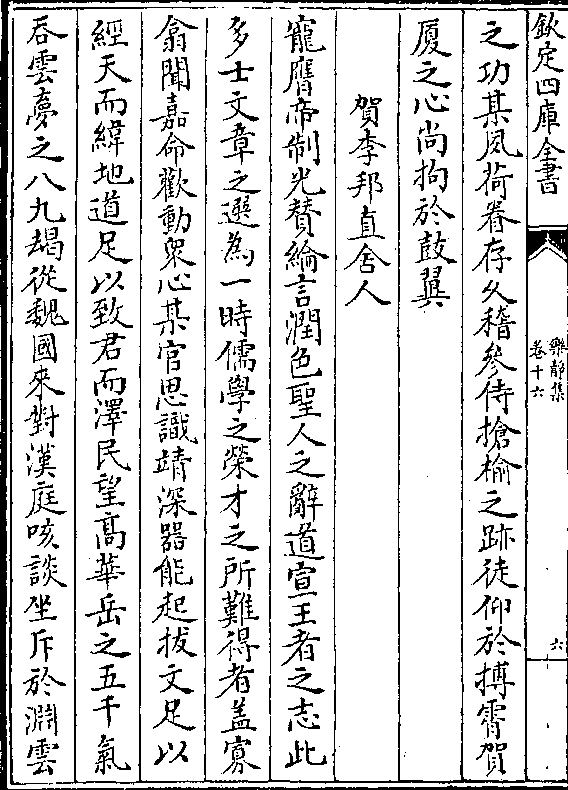 欽定四庫全書
樂靜集
卷十六
六
之功某夙荷眷存久稽參侍搶榆之跡徒仰於摶霄賀
厦之心尚拘於鼓翼
賀李邦直舍人
寵膺帝制光賛綸言潤色聖人之辭道宣王者之志此
多士文章之選為一時儒學之榮才之所難得者盖寡
翕聞嘉命歡動衆心某官思識靖深器能起拔文足以
經天而緯地道足以致君而澤民望高華岳之五千氣
吞雲夢之八九朅從魏國來對漢庭咳談坐斥於淵雲